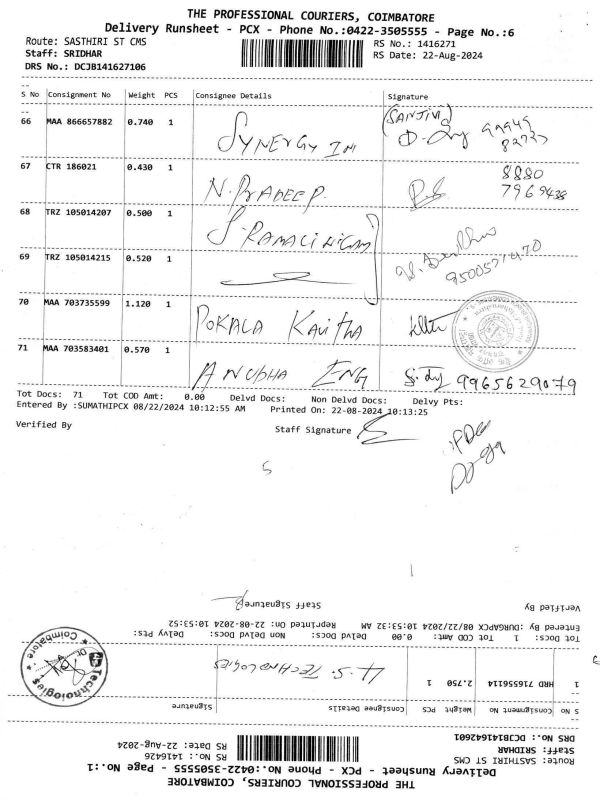 THE PROFESSIONAL COURIERS, COIMBATORE
Delivery Runsheet - PCX - Phone No.:0422-3505555 - Page No.:6
Route: SASTHIRI ST CMS
RS No.: 1416271
Staff: SRIDHAR
RS Date: 22-Aug-2024
DRS No.: DCJB141627106
S No Consignment No Weight PCS Consignee Details Signature
66 MAA 866657882 0.740 1 SYNERGY IN (SANJIV)
67 CTR 186021 0.430 1 N. PRADEEP. 8880
7969438
68 TRZ 105014207 0.500 1
69 TRZ 105014215 0.520 1
70 MAA 703735599 1.120 1 POKALA Kavitha
71 MAA 703583401 0.570 1 ANUBHA ENG 9965629079
Tot Docs: 71 Tot COD Amt: 0.00 Delvd Docs: Non Delvd Docs: Delvy Pts:
Entered By :SUMATHIPCX 08/22/2024 10:12:55 AM Printed On: 22-08-2024 10:13:25
Verified By Staff Signature
THE PROFESSIONAL COURIERS, COIMBATORE
Delivery Runsheet - PCX - Phone No.:0422-3505555 - Page No.:1
Route: SASTHIRI ST CMS
RS No.: 1416426
Staff: SRIDHAR
RS Date: 22-Aug-2024
DRS No.: DCJB141642601
S No Consignment No Weight PCS Consignee Details Signature
1 HRD 716556114 2.750 1 4.S. TECHNOLOGIES
Technologies
* Coimbatore *
Tot Docs: 1 Tot COD Amt: 0.00 Delvd Docs: Non Delvd Docs: Delvy Pts:
Entered By :DURGAPCX 08/22/2024 10:53:32 AM Reprinted On: 22-08-2024 10:53:52
Verified By Staff Signature